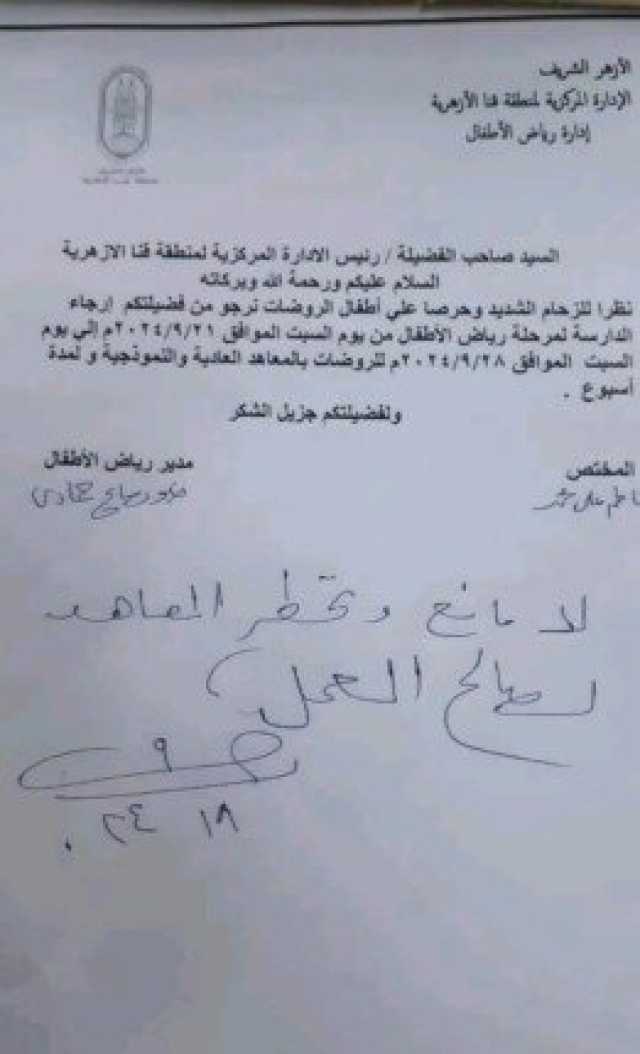 الأزهر الشريف
الإدارة المركزية لمنطقة قنا الأزهرية
إدارة رياض الأطفال
السيد صاحب الفضيلة / رئيس الادارة المركزية لمنطقة قنا الازهرية
السلام عليكم ورحمة الله وبركاته
نظرا للزحام الشديد وحرصا علي أطفال الروضات نرجو من فضيلتكم إرجاء
الدارسة لمرحلة رياض الأطفال من يوم السبت الموافق ٢٠٢٤/٩/٢١م الي يوم
السبت الموافق ٢٠٢٤/٩/٢٨م للروضات بالمعاهد العادية والنموذجية و لمدة
أسبوع .
ولفضيلتكم جزيل الشكر
المختص
مدير رياض الأطفال
لا مانع وتخطر المعاهد
لصالح العمل
٩
١٨ ٢٤